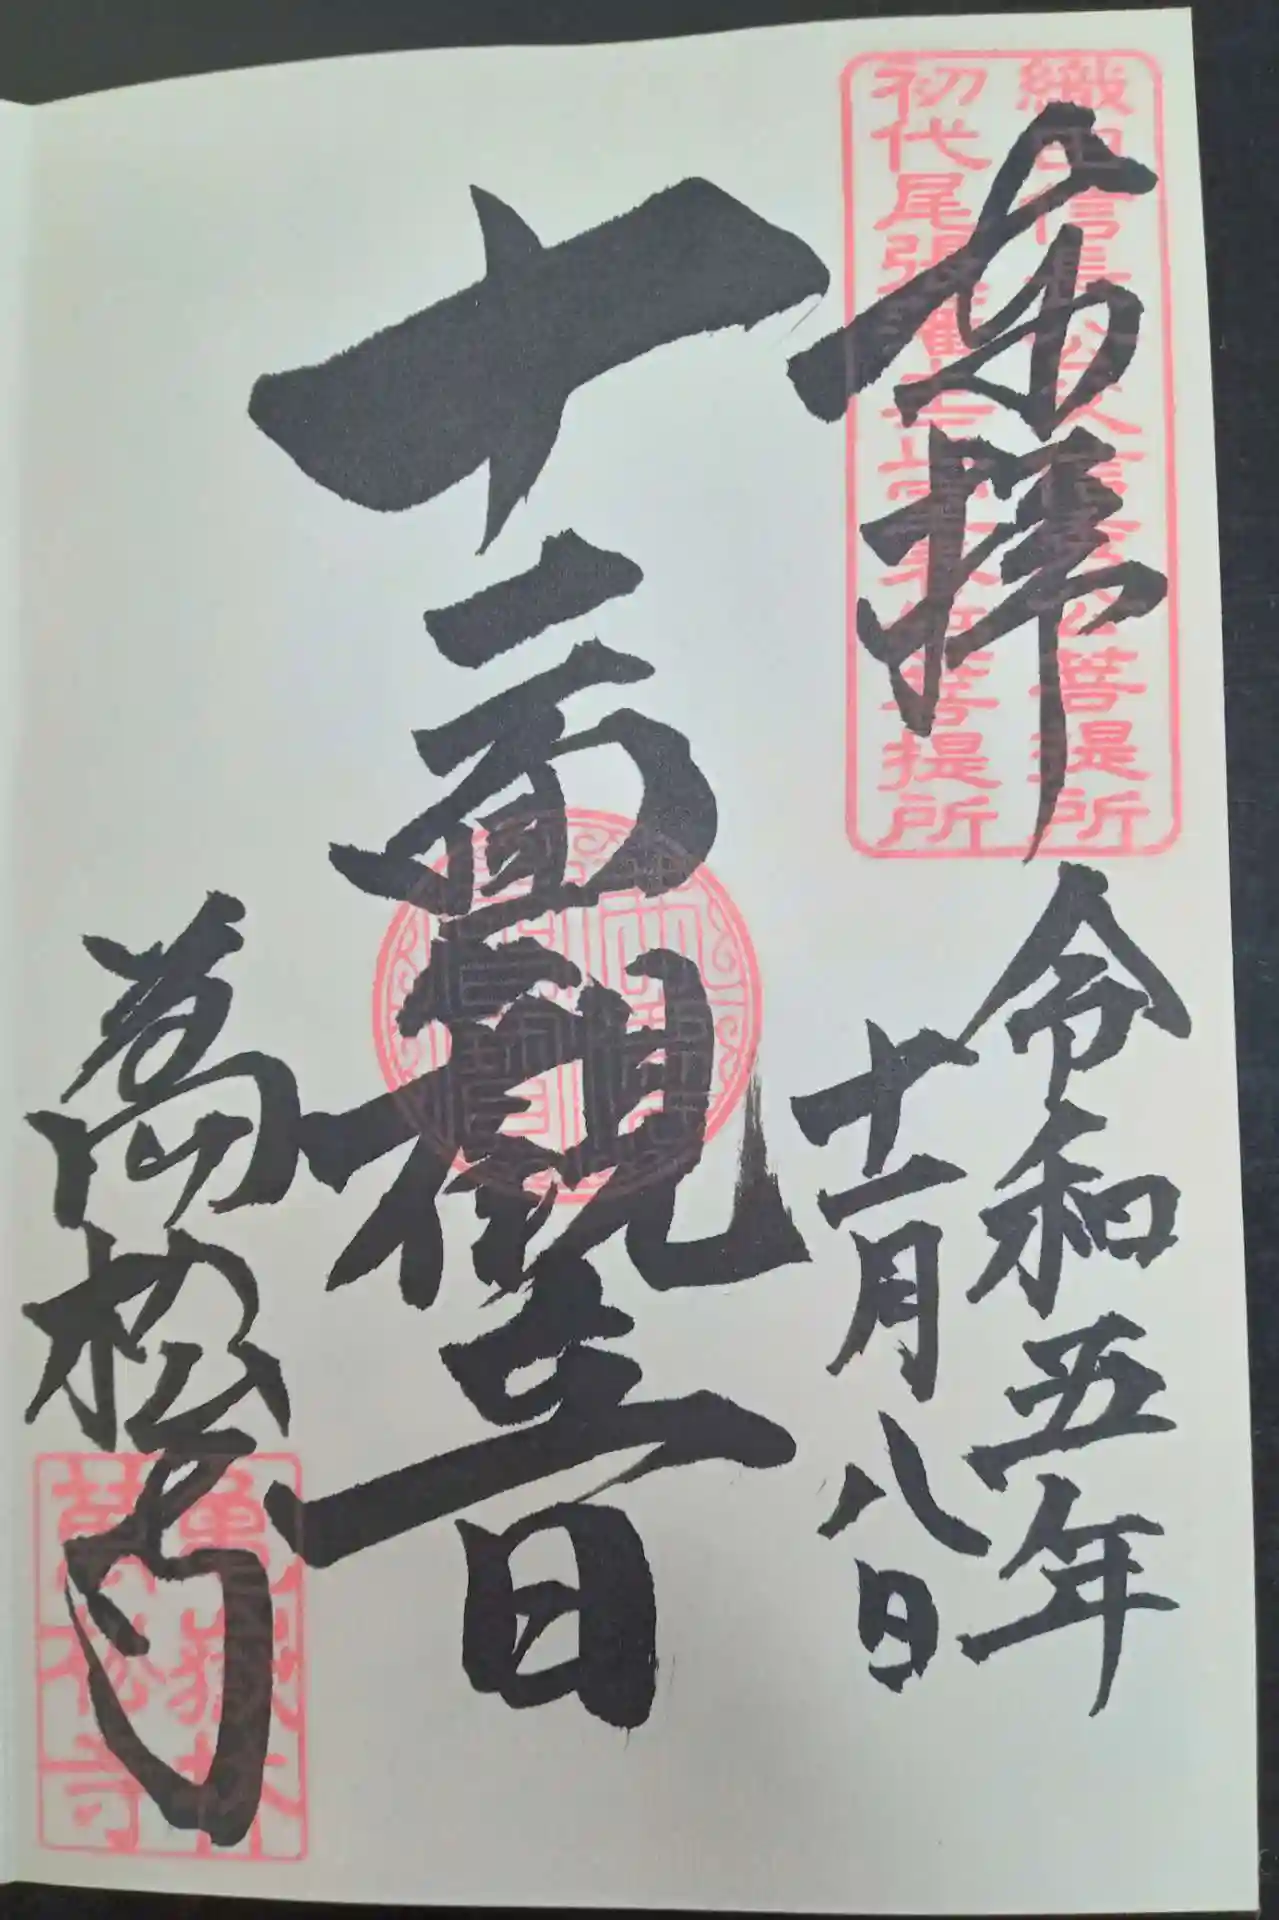 織田信長公父信秀公菩提所
初代尾張藩主正室 菩提所
奉拝
令和五年
十一月八日
十一面觀音
萬松寺
亀嶽林
萬松寺